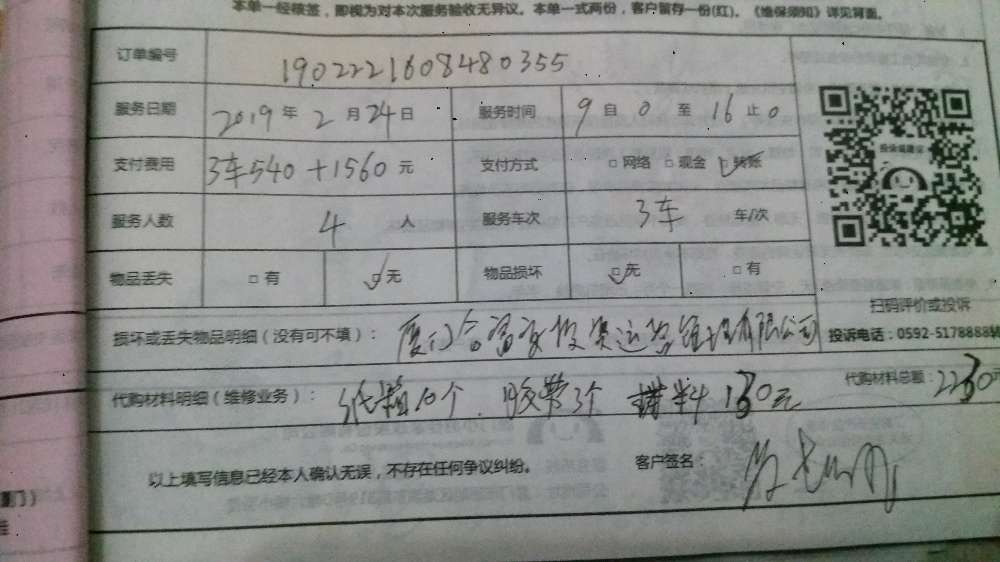 本单一经核签，即视为对本次服务验收无异议。本单一式两份，客户留存一份(红)。《维保须知》详见背面。
订单编号 1902221608480355
服务日期 2019 年 2 月 24 日 服务时间 9 自 0 至 16 止 0
支付费用 3车540+1560 元 支付方式 □网络 □现金 □转账
服务人数 4 人 服务车次 3车 车/次
物品丢失 □有 □无 物品损坏 □无 □有
扫码评价或投诉
损坏或丢失物品明细（没有可不填）： 厦门合富 运营管理有限公司
投诉电话：0592-5178888转
代购材料明细（维修业务）： 纸箱10个. 胶带3个 130元
代购材料总额： 2230元
以上填写信息已经本人确认无误，不存在任何争议纠纷。 客户签名：
厦门）